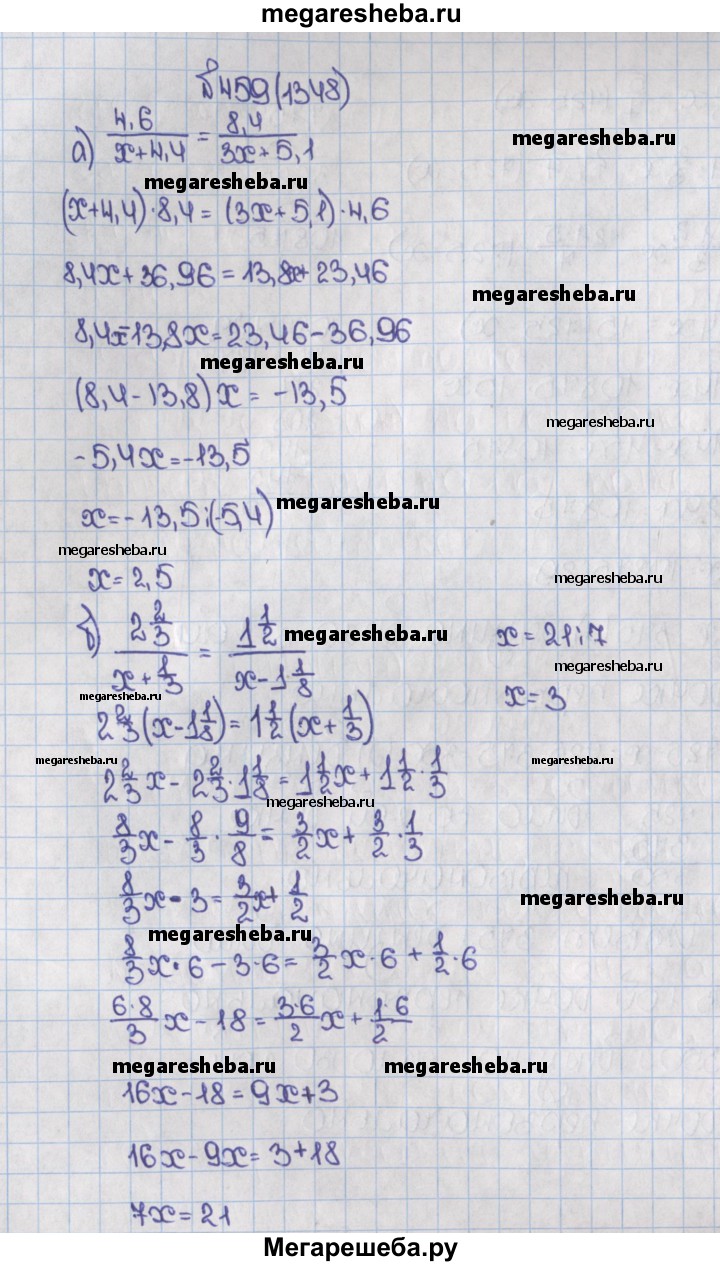 megaresheba.ru
№459(1348)
а) 4,6/(x+4,4) = 8,4/(3x+5,1)
megaresheba.ru
megaresheba.ru
(x+4,4)·8,4 = (3x+5,1)·4,6
8,4x+36,96 = 13,8x+23,46
megaresheba.ru
8,4x-13,8x=23,46-36,96
megaresheba.ru
(8,4-13,8)x = -13,5
megaresheba.ru
-5,4x=-13,5
x=-13,5:(-5,4)
megaresheba.ru
megaresheba.ru
megaresheba.ru
x=2,5
б) 2 2/3/(x+1/3) = 1 1/2/(x-1 1/8)
megaresheba.ru
megaresheba.ru
megaresheba.ru
2 2/3(x-1 1/8)=1 1/2(x+1/3)
megaresheba.ru
megaresheba.ru
2 2/3x-2 2/3·1 1/8=1 1/2x+1 1/2·1/3
megaresheba.ru
8/3x-8/3·9/8=3/2x+3/2·1/3
8/3x-3=3/2x+1/2
megaresheba.ru
megaresheba.ru
8/3x·6-3·6=3/2x·6+1/2·6
6·8/3x-18=3·6/2x+1·6/2
megaresheba.ru
megaresheba.ru
16x-18=9x+3
16x-9x=3+18
7x=21
x=21:7
x=3
Мегарешеба.ру